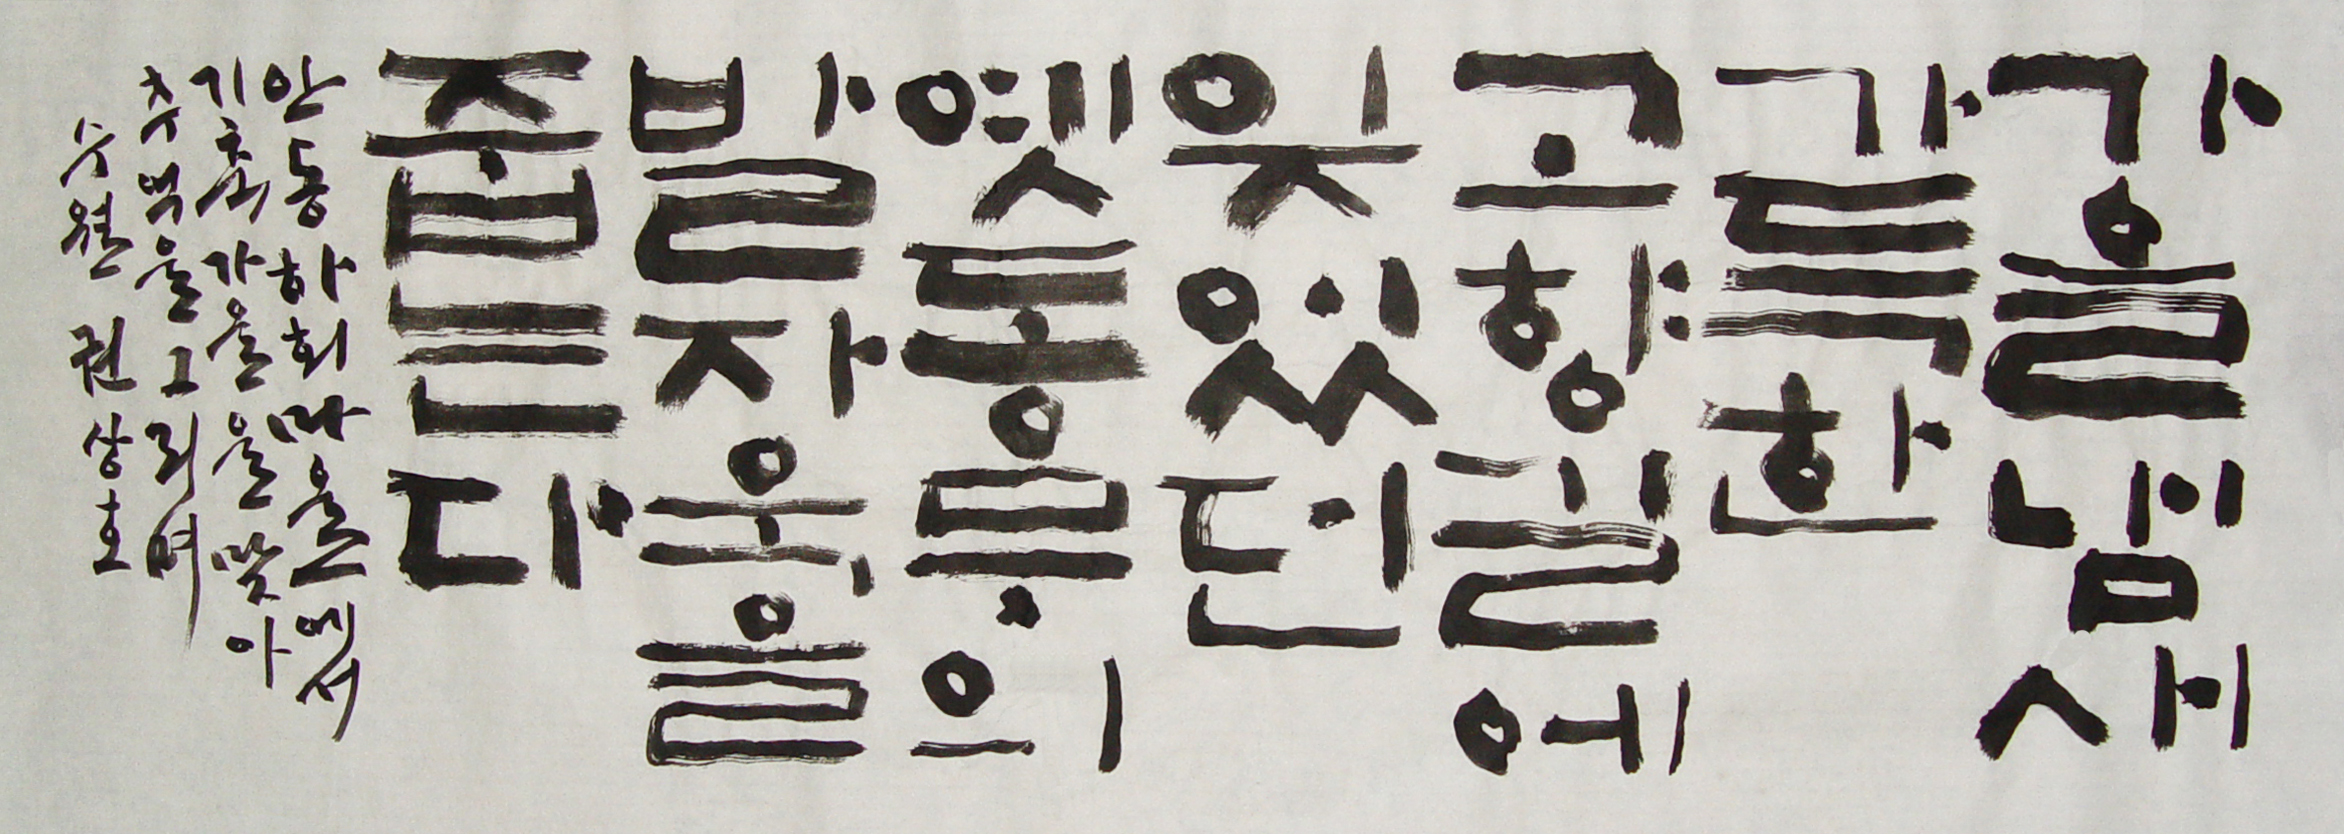 가을냄새
가득한
고향길에
잊었던
옛동무의
발자욱을
줍는다
안동하회마을에서
기축가을을맞아
추억을그리며
수월 권상호